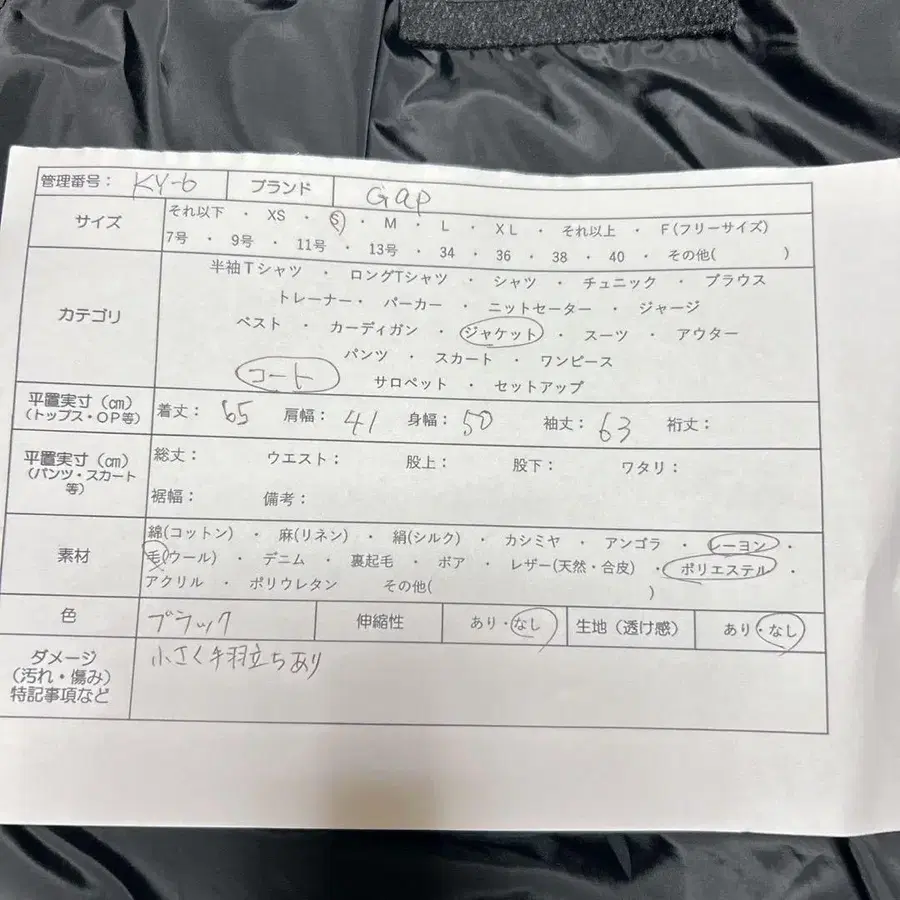 管理番号： KY-6 ブランド Gap
サイズ それ以下 ・ XS ・ S ・ M ・ L ・ XL ・ それ以上 ・ F(フリーサイズ)
7号 ・ 9号 ・ 11号 ・ 13号 ・ 34 ・ 36 ・ 38 ・ 40 ・ その他( )
カテゴリ 半袖Tシャツ ・ ロングTシャツ ・ シャツ ・ チュニック ・ ブラウス
トレーナー・ パーカー ・ ニットセーター ・ ジャージ
ベスト ・ カーディガン ・ ジャケット ・ スーツ ・ アウター
パンツ ・ スカート ・ ワンピース
コート サロペット ・ セットアップ
平置実寸（㎝）
（トップス・OP等） 着丈： 65 肩幅： 41 身幅： 50 袖丈： 63 裄丈：
平置実寸（㎝）
（パンツ・スカート
等） 総丈： ウエスト： 股上： 股下： ワタリ：
裾幅： 備考：
素材 綿(コットン) ・ 麻(リネン) ・ 絹(シルク) ・ カシミヤ ・ アンゴラ ・ レーヨン ・
毛(ウール) ・ デニム ・ 裏起毛 ・ ボア ・ レザー(天然・合皮) ・ ポリエステル ・
アクリル ・ ポリウレタン その他( )
色 ブラック 伸縮性 あり・なし 生地（透け感） あり・なし
ダメージ
（汚れ・傷み）
特記事項など 小さく毛羽立ちあり